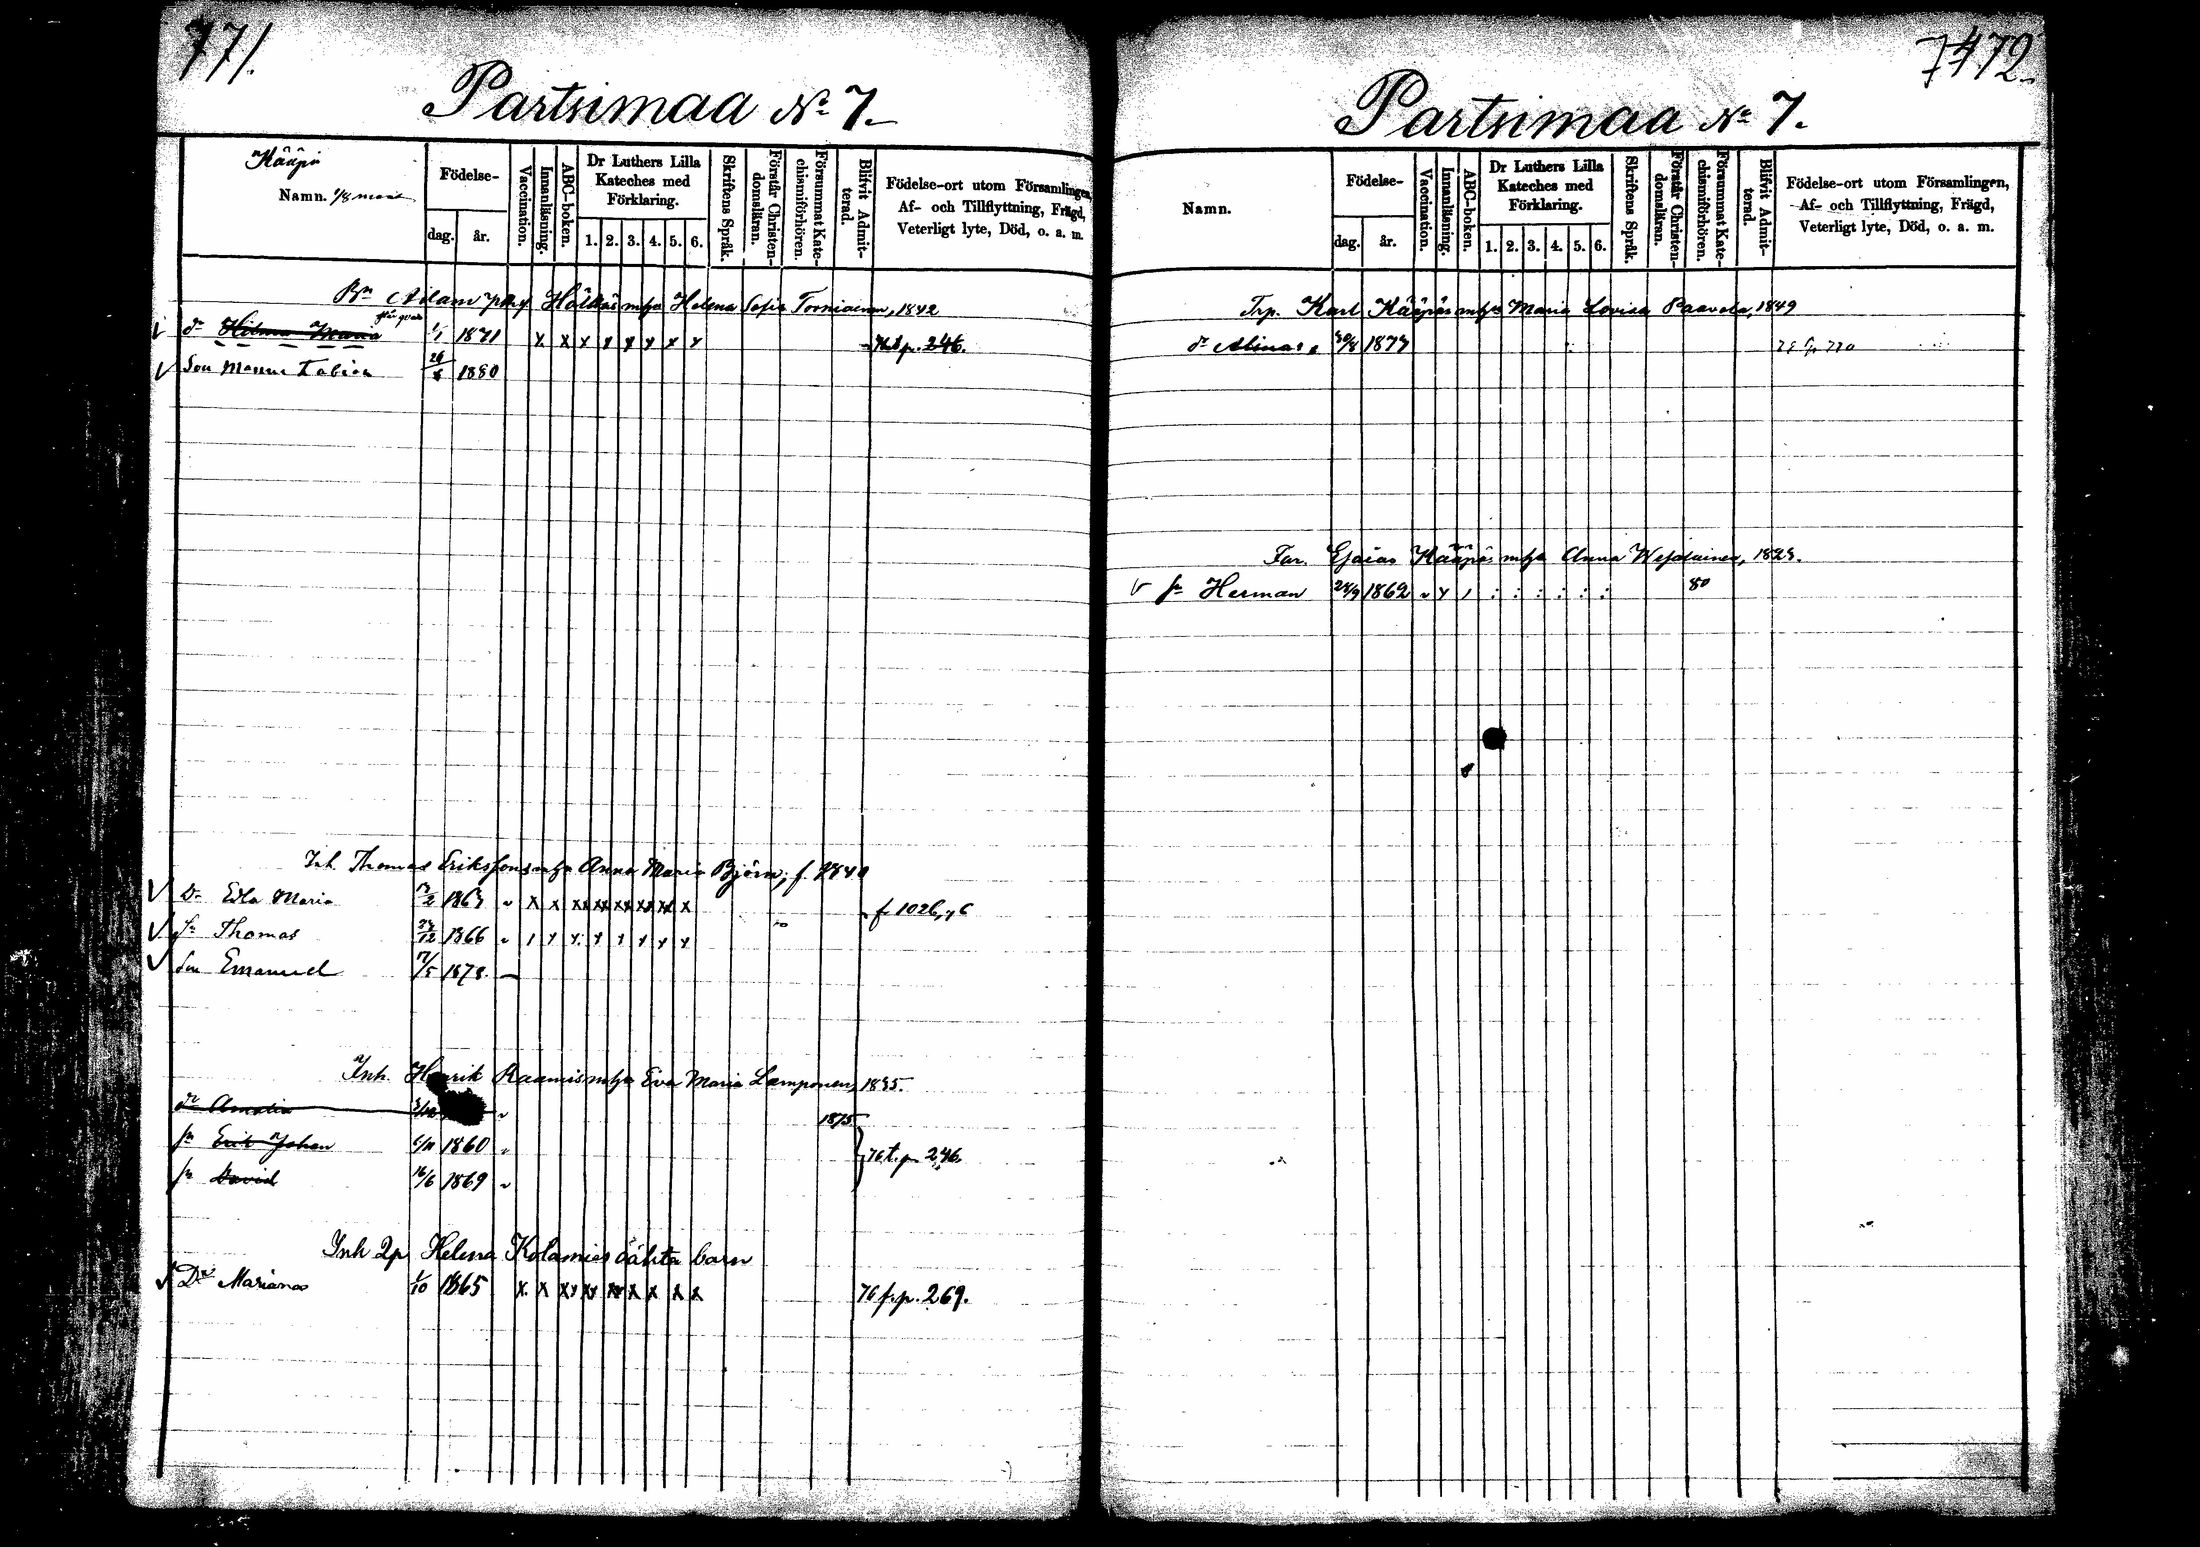 771.
Partsimaa No 7.
Kääpä
Namn. 1/8 mant
Födelse-
dag. år.
Vaccination.
Innanläsning.
ABC-boken.
Dr Luthers Lilla Kateches med Förklaring.
1. 2. 3. 4. 5. 6.
Skriftens Språk.
Förstår Christen-domsläran.
Försummat Kate-chismiförhören.
Blifvit Admit-terad.
Födelse-ort utom Församlingen,
Af- och Tillflyttning, Frägd,
Veterligt lyte, Död, o. a. m.
Bn Adam Hölkäs mha Helena Sofia Torniainen, 1842
dr Hilma Maria 1/1 1871 x x x x x x x x 246.
Son Manne Tobias 1880
Inh. Thomas Erikssons mha Anna Maria Björn, f. 1840
Dr Edla Maria 1863 x x xx xx xx xx xx x f. 1026
Sn Thomas 1866
Son Emanuel 1878
Inh. Henrik Raamis mha Eva Maria Lamponen, 1835.
dr Amalia 1875
sn Erik Johan 6/11 1860
76 t. p. 246
sn David 16/6 1869
Inh Qp. Helena Kolamies oäkta barn
Dr Mariana 1/10 1865 x x xx xx xx x x x x 76 f. p. 269.
7472.
Partsimaa No 7.
Namn.
Födelse-
dag. år.
Vaccination.
Innanläsning.
ABC-boken.
Dr Luthers Lilla Kateches med Förklaring.
1. 2. 3. 4. 5. 6.
Skriftens Språk.
Förstår Christen-domsläran.
Försummat Kate-chismiförhören.
Blifvit Admit-terad.
Födelse-ort utom Församlingen,
Af- och Tillflyttning, Frägd,
Veterligt lyte, Död, o. a. m.
Trp. Karl Kääpäs mha Maria Lovisa Paavola, 1849
dr Alina 1877
Far. Esaias Kääpäs mha Anna
sn Herman 24/9 1862 80